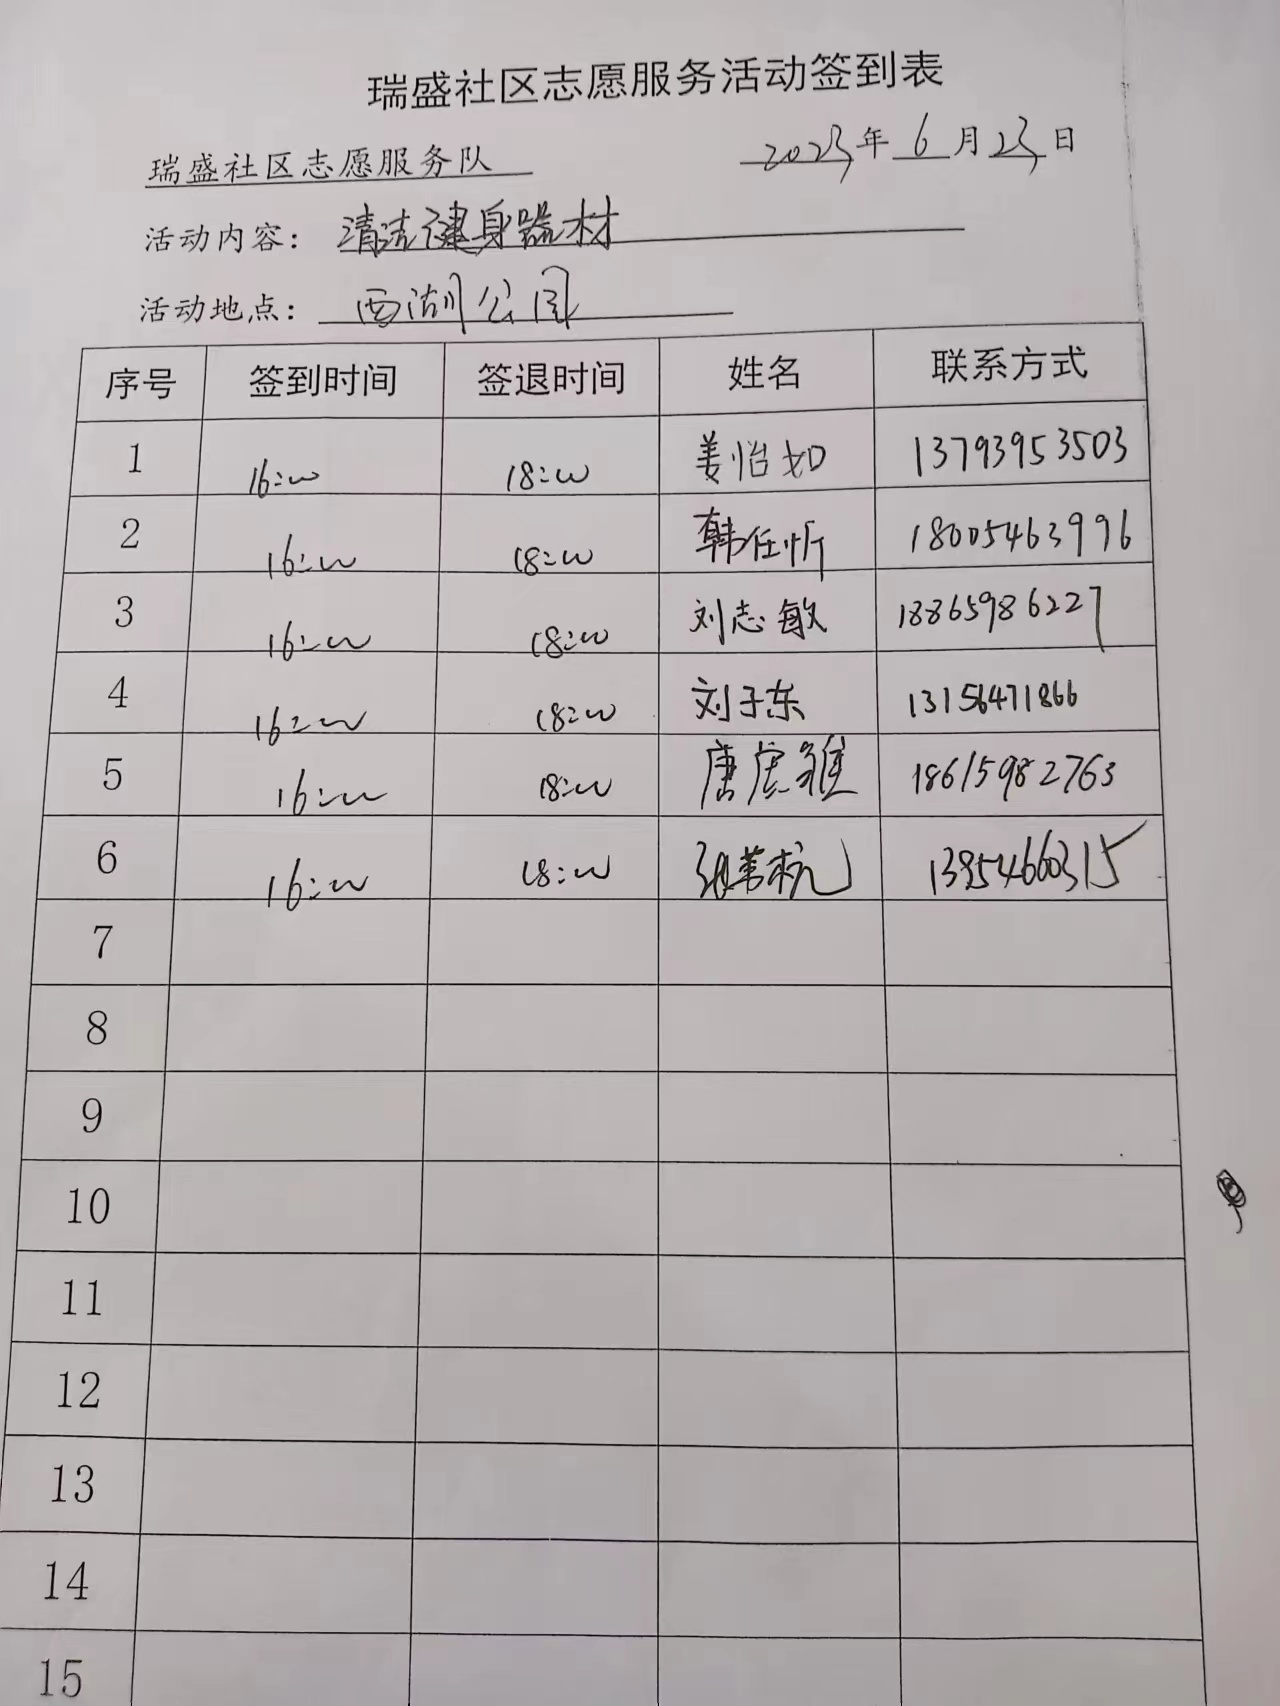 瑞盛社区志愿服务活动签到表
瑞盛社区志愿服务队 2023年6月23日
活动内容：清洁健身器材
活动地点：西湖公园
序号 签到时间 签退时间 姓名 联系方式
1 16:00 18:00 姜怡如 13793953503
2 16:00 18:00 韩任忻 18005463996
3 16:00 18:00 刘志敏 18865986227
4 16:00 18:00 刘子东 13156471866
5 16:00 18:00 18615982763
6 16:00 18:00 13954660315
7
8
9
10
11
12
13
14
15